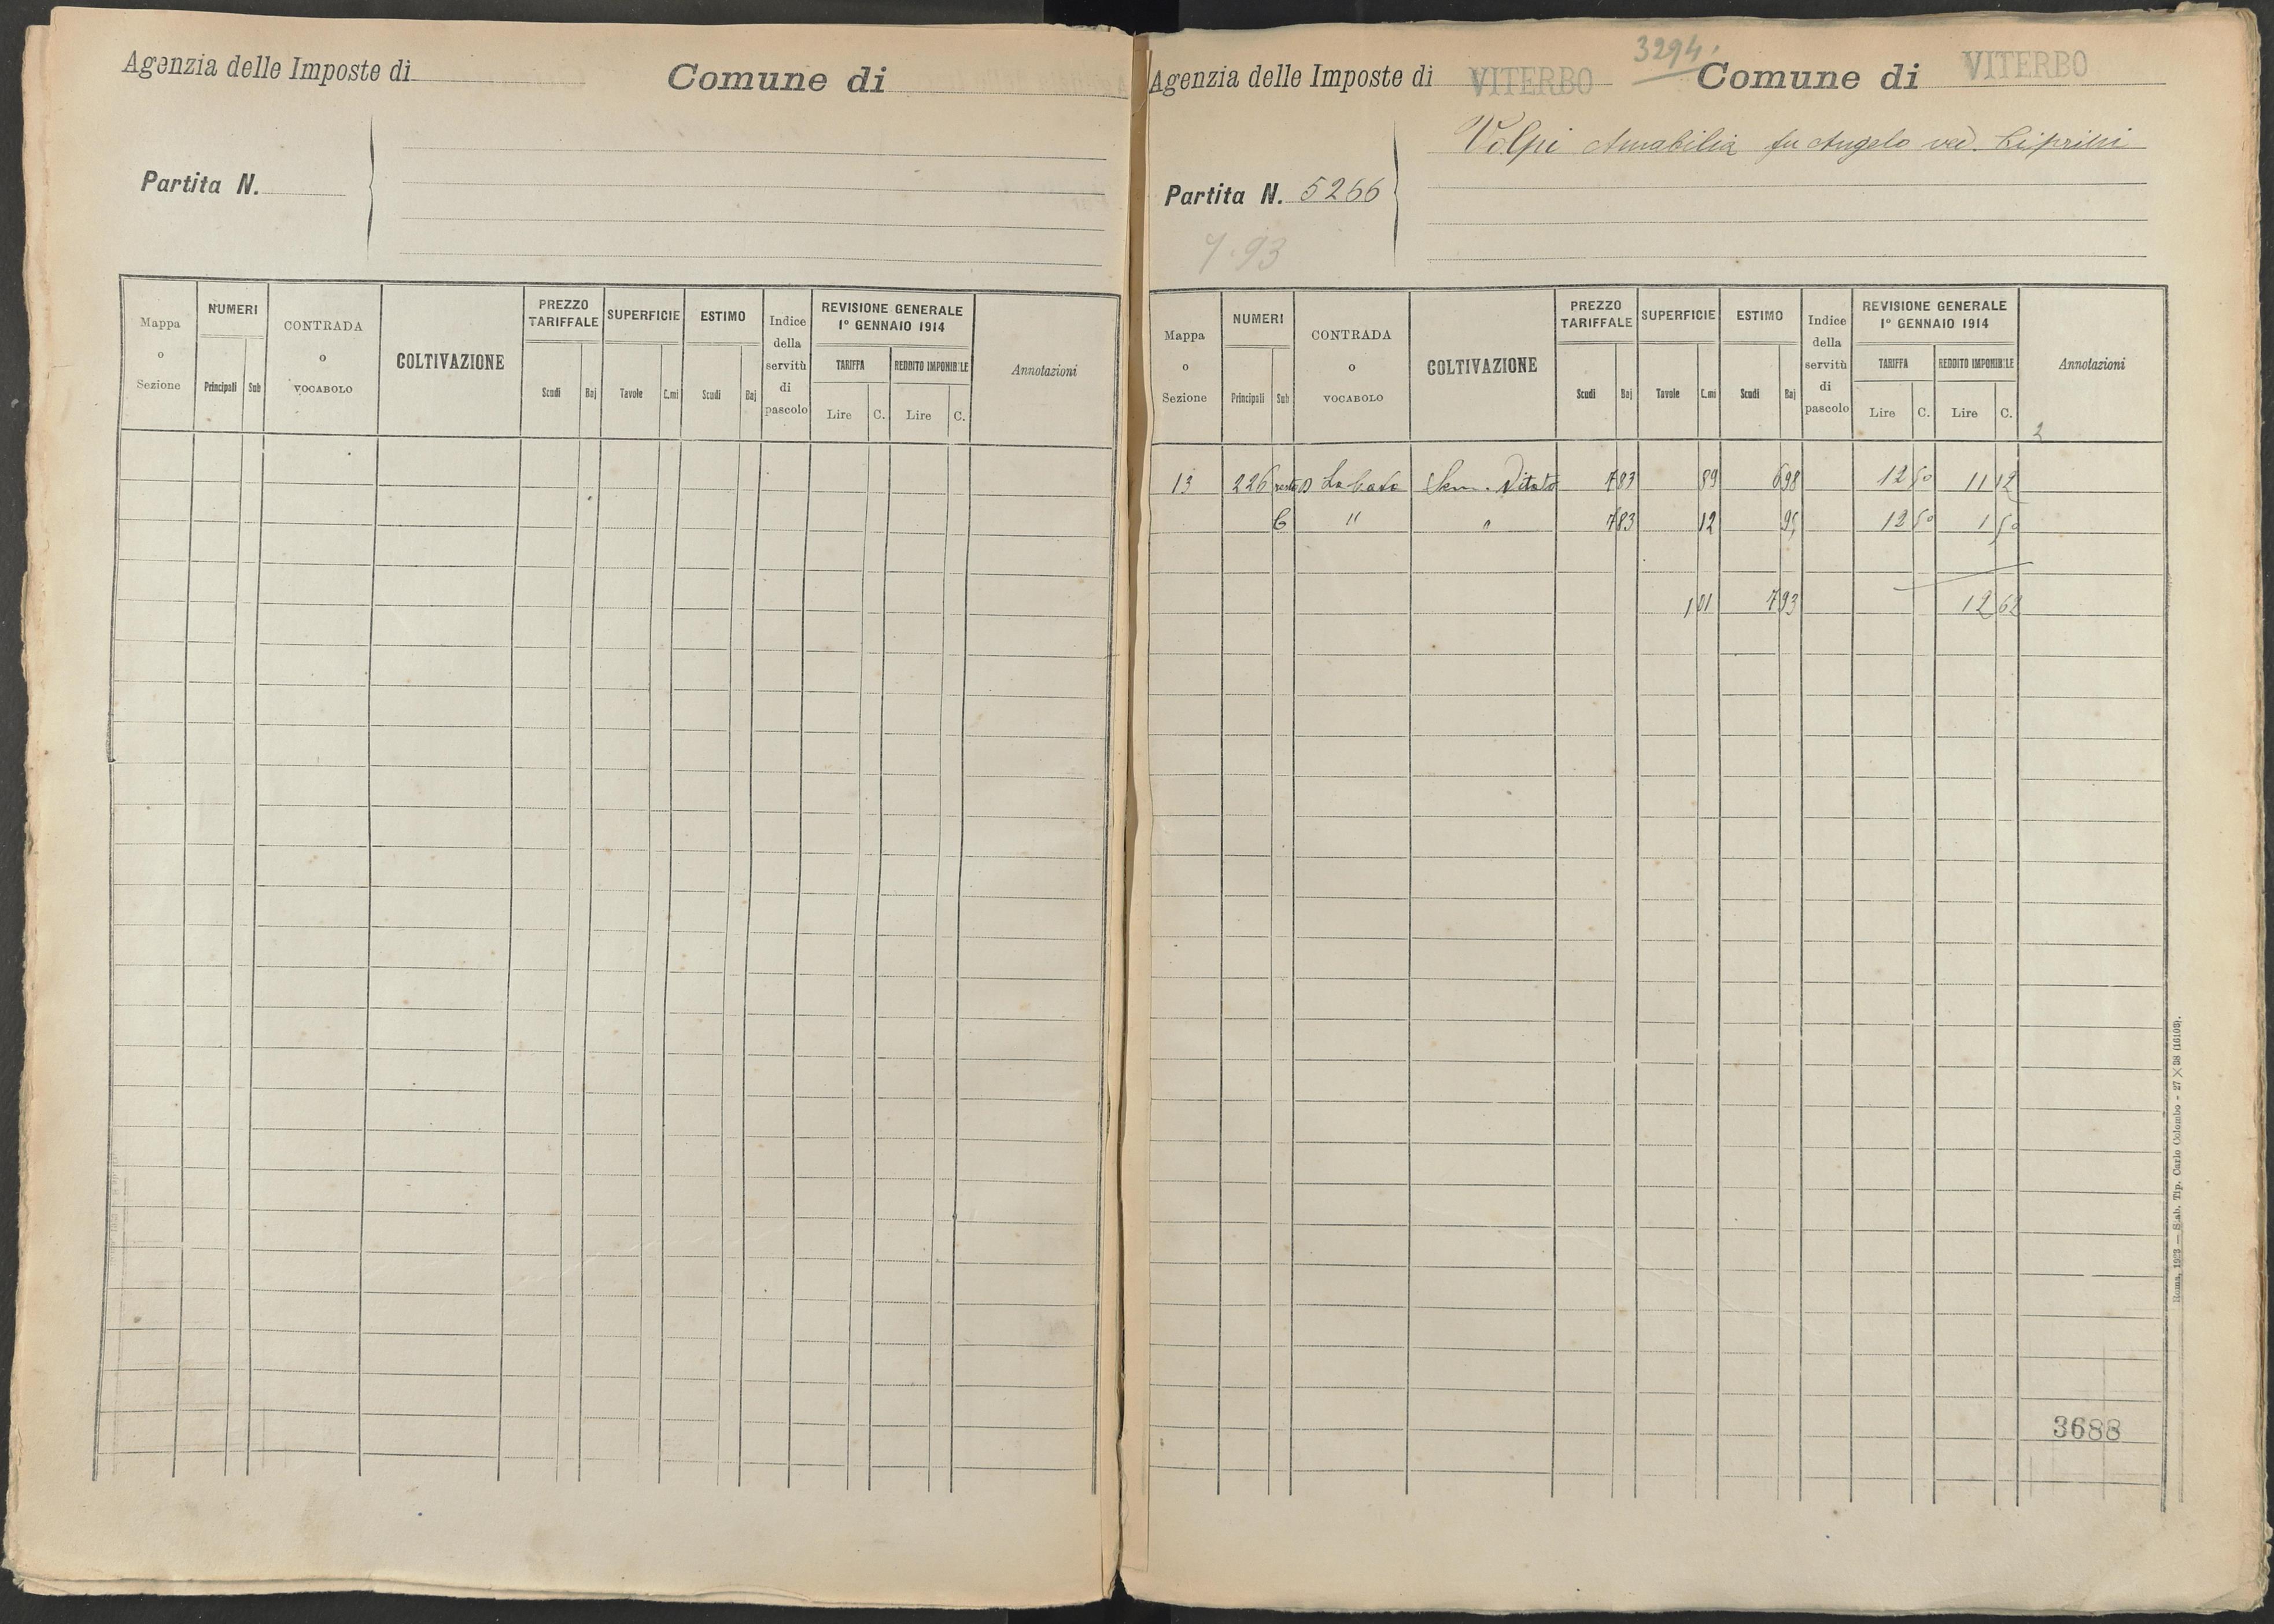 Agenzia delle Imposte di
Comune di
Partita N.
Mappa o Sezione
NUMERI
Principali Sub
CONTRADA o VOCABOLO
COLTIVAZIONE
PREZZO TARIFFALE
Scudi Baj
SUPERFICIE
Tavole C.mi
ESTIMO
Scudi Baj
Indice della servitù di pascolo
REVISIONE GENERALE 1º GENNAIO 1914
TARIFFA
Lire C.
REDDITO IMPONIBILE
Lire C.
Annotazioni
3294
Agenzia delle Imposte di VITERBO Comune di VITERBO
Volpi Amabilia fu Angelo ved. Ciprini
Partita N. 5266
7.93
Mappa o Sezione
NUMERI
Principali Sub
CONTRADA o VOCABOLO
COLTIVAZIONE
PREZZO TARIFFALE
Scudi Baj
SUPERFICIE
Tavole C.mi
ESTIMO
Scudi Baj
Indice della servitù di pascolo
REVISIONE GENERALE 1º GENNAIO 1914
TARIFFA
Lire C.
REDDITO IMPONIBILE
Lire C.
Annotazioni
2
13 226 resto La Cava Sem. Vitato 7 83 89 6 98 12 50 11 12
C " " 7 83 12 95 12 50 1 50
1 01 7 93 12 62
3688
Roma, 1923 — Stab. Tip. Carlo Colombo - 27 × 38 (16103).